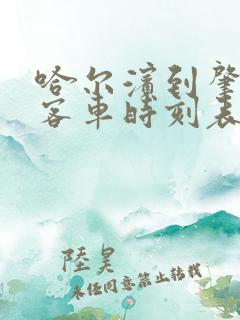 哈尔滨到肇
客车时刻表
陸昊
未经同意禁止转载